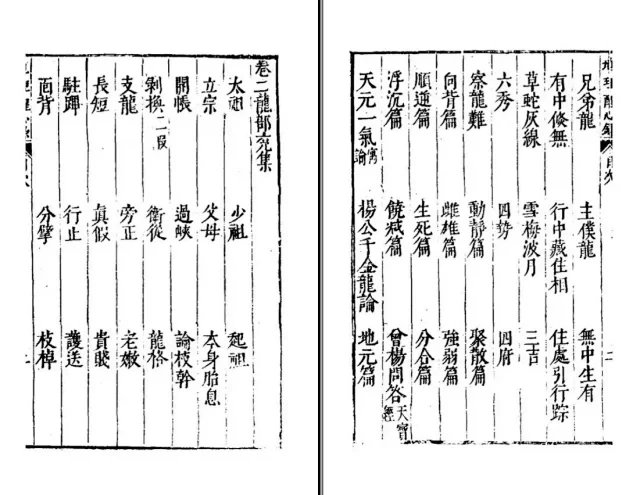 卷二龍部亢集
太祖 少祖 起祖
立宗 父母 本身胎息
開帳 過峽 論枝幹
剝換二段 衛從 龍格
支龍 旁正 老嫩
長短 真假 貴賤
駐蹕 行止 護送
面背 分擘 枝棹
目次 二
兄弟龍 主僕龍 無中生有
有中倏無 行中藏住相 住處引行踪
草蛇灰線 雪梅波月 三吉
六秀 四勢 四府
察龍難 動靜篇 聚散篇
向背篇 雌雄篇 強弱篇
順逆篇 生死篇 分合篇
浮沉篇 饒減篇 曾楊問答天寶經
天元一氣寓論 楊公千金龍論 地元篇